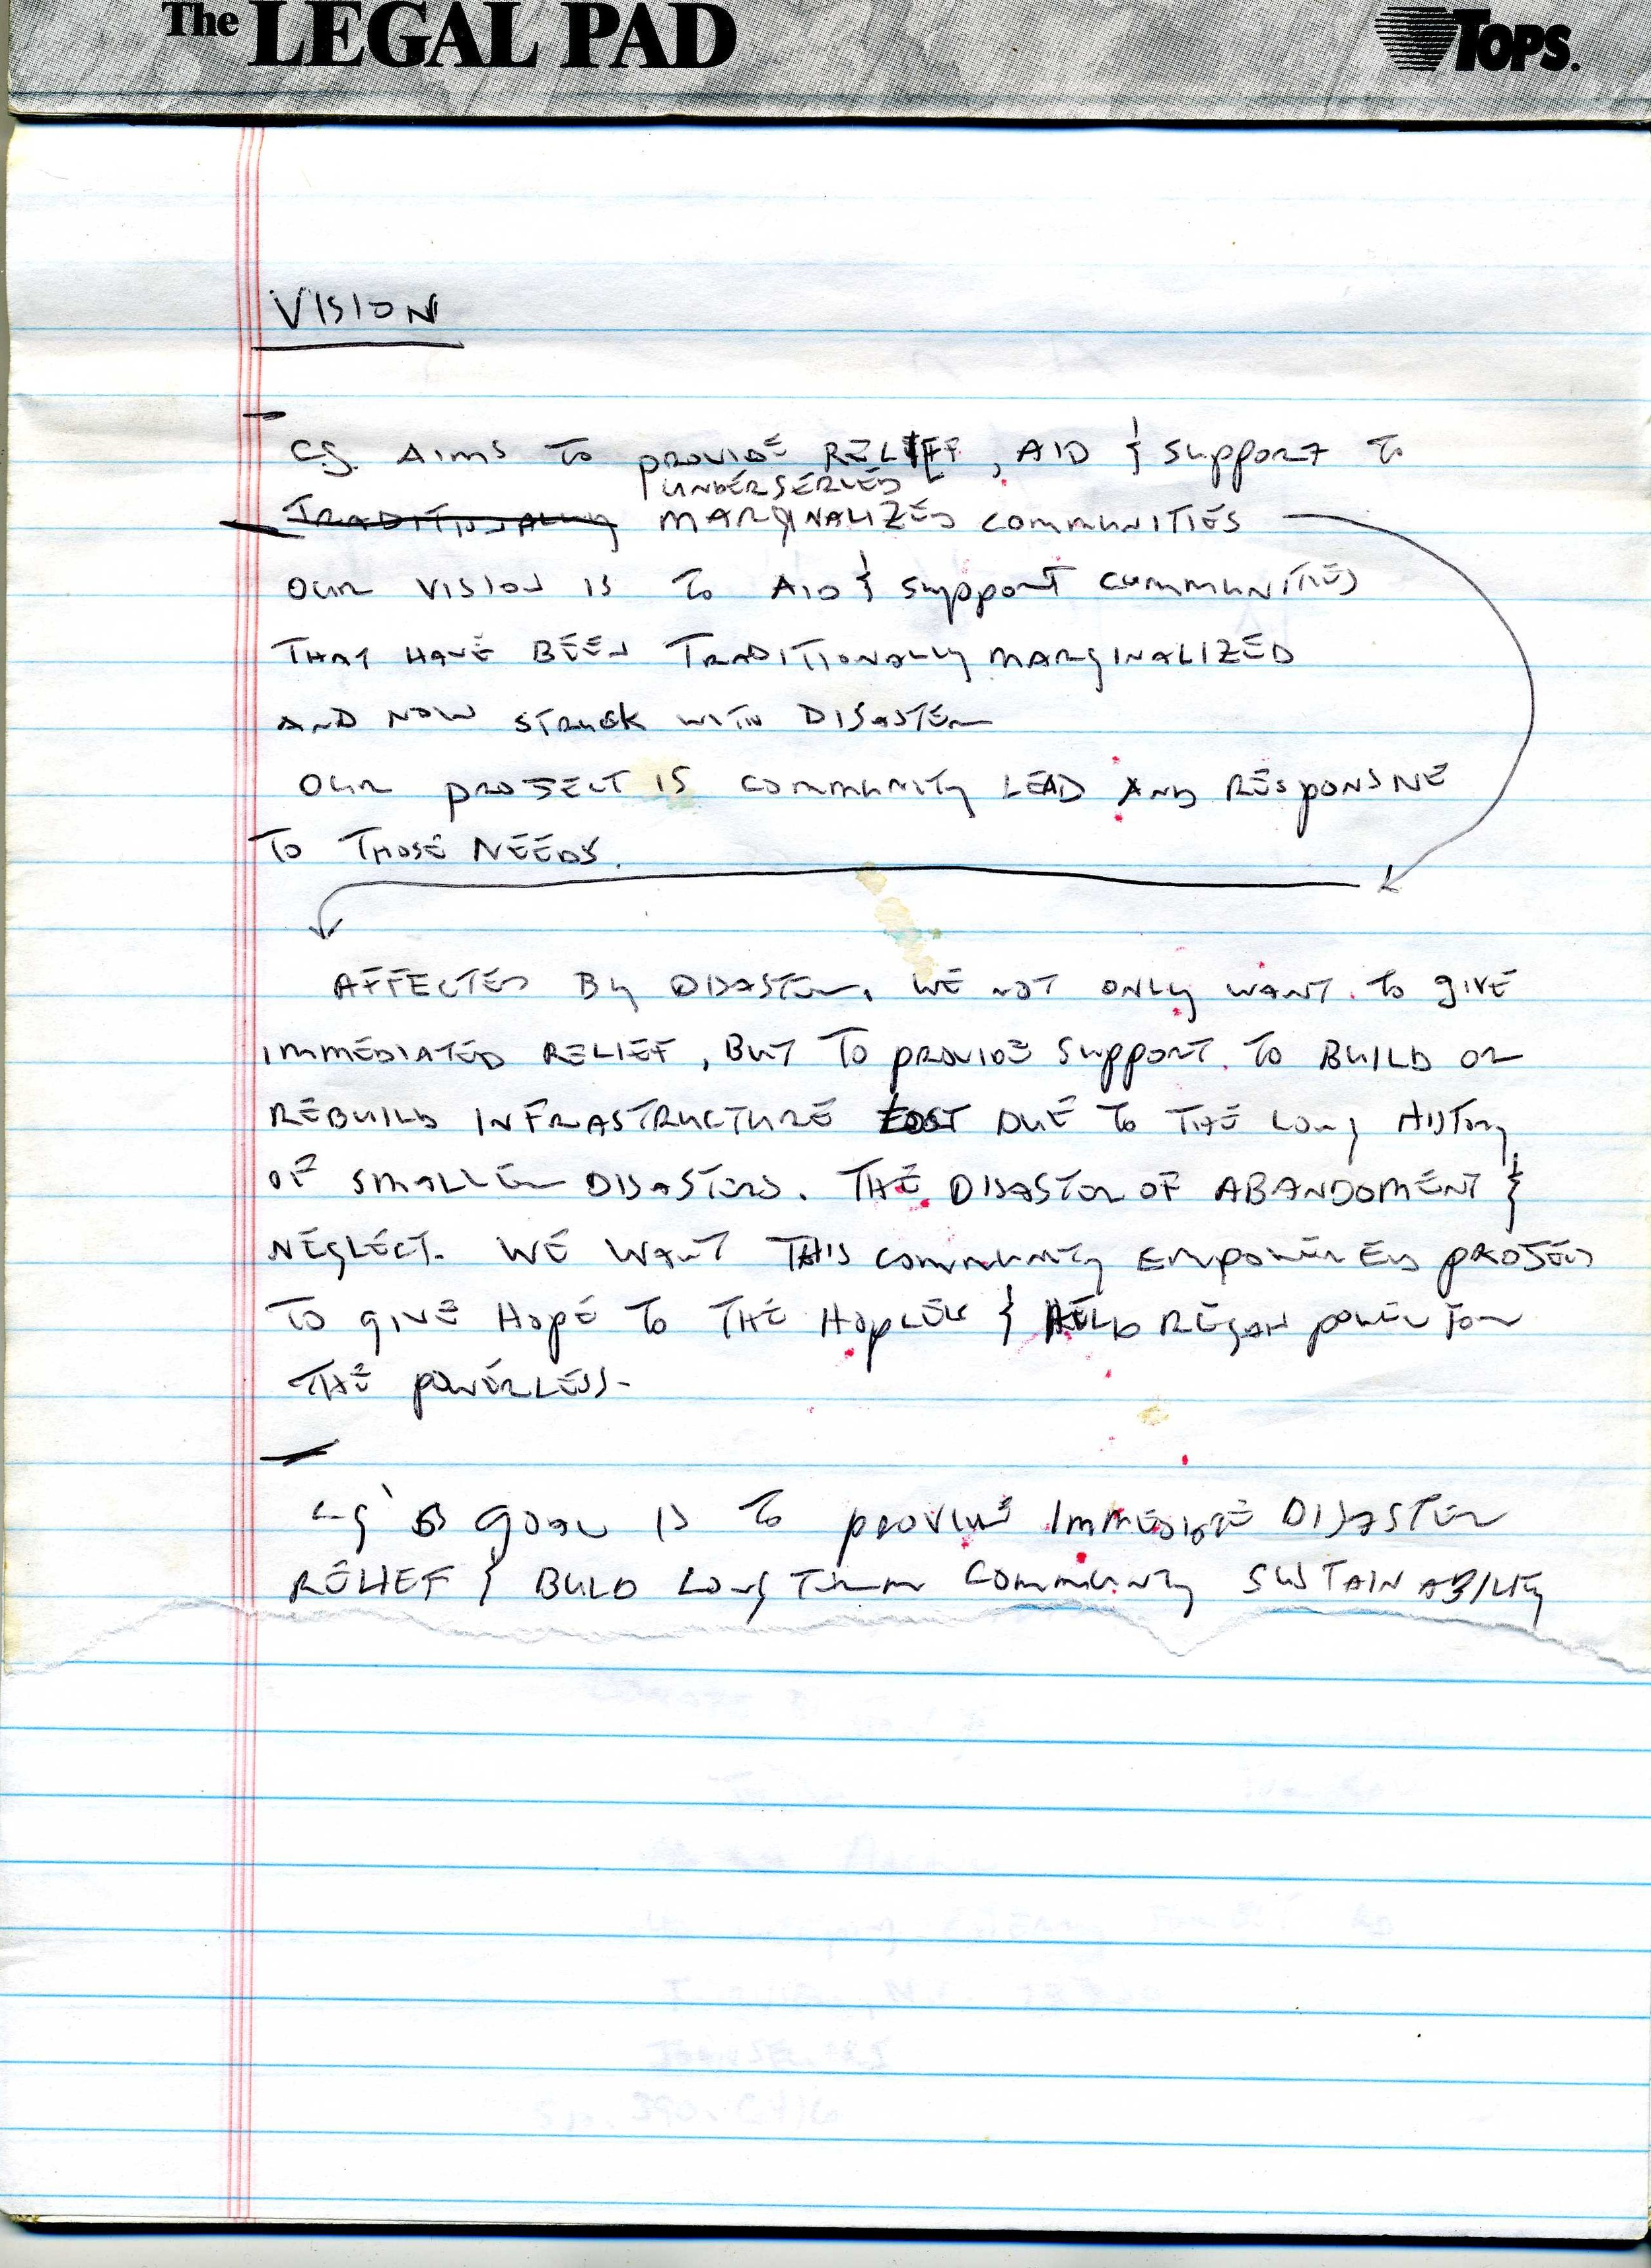 The LEGAL PAD TOPS.
VISION
C.G. AIMS TO PROVIDE RELIEF, AID & SUPPORT TO
UNDERSERVED
TRADITIONALLY MARGINALIZED COMMUNITIES
OUR VISION IS TO AID & SUPPORT COMMUNITIES
THAT HAVE BEEN TRADITIONALLY MARGINALIZED
AND NOW STRUCK WITH DISASTER
OUR PROJECT IS COMMUNITY LEAD AND RESPONSIVE
TO THOSE NEEDS.
AFFECTED BY DISASTER. WE NOT ONLY WANT TO GIVE
IMMEDIATED RELIEF, BUT TO PROVIDE SUPPORT TO BUILD OR
REBUILD INFRASTRUCTURE LOST DUE TO THE LONG HISTORY
OF SMALLER DISASTERS. THE DISASTER OF ABANDOMENT &
NEGLECT. WE WANT THIS COMMUNITY EMPOWERED PROJECT
TO GIVE HOPE TO THE HOPLESS & HELP REGAIN POWER FOR
THE POWERLESS-
CG'S GOAL IS TO PROVIDE IMMEDIATE DISASTER
RELIEF & BUILD LONG TERM COMMUNITY SUSTAINABILITY